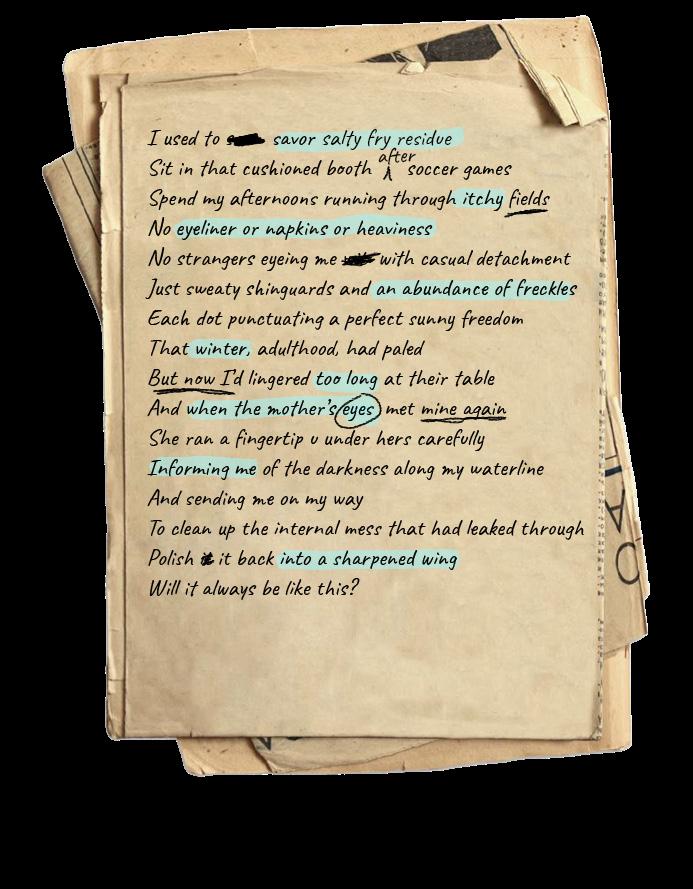 I used to savor salty fry residue
Sit in that cushioned booth after soccer games
Spend my afternoons running through itchy fields
No eyeliner or napkins or heaviness
No strangers eyeing me with casual detachment
Just sweaty shinguards and an abundance of freckles
Each dot punctuating a perfect sunny freedom
That winter, adulthood, had paled
But now I'd lingered too long at their table
And when the mother's eyes met mine again
She ran a fingertip u under hers carefully
Informing me of the darkness along my waterline
And sending me on my way
To clean up the internal mess that had leaked through
Polish it back into a sharpened wing
Will it always be like this?